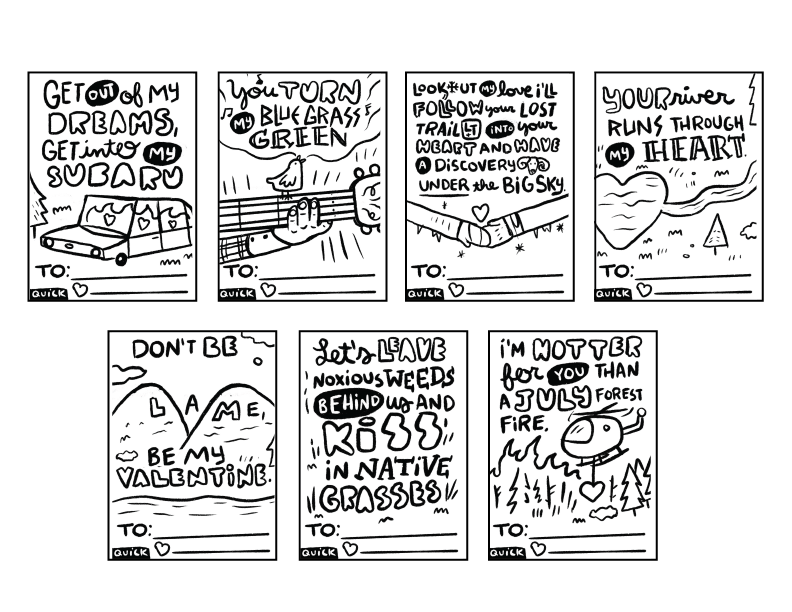 GET OUT of MY
DREAMS,
GET into MY
SUBARU
TO:
QUICK
You TURN
MY BLUEGRASS
GREEN
TO:
QUICK
LOOK OUT MY love i'LL
FOLLOW your LOST
TRAIL LT iNTO your
HEART AND HAVE
A DISCOVERY
UNDER the BiG SKY.
TO:
QUICK
YOUR river
RUNS THROUGH
MY HEART.
TO:
QUICK
DON'T BE
LAME,
BE MY
VALENTiNE.
TO:
QUICK
Let's LEAVE
NOXiOUS WEEDS
BEHiND us AND
KiSS
iN NATiVE
GRASSES
TO:
QUICK
i'M HOTTER
for YOU THAN
A JULY FOREST
FiRE.
TO:
QUICK